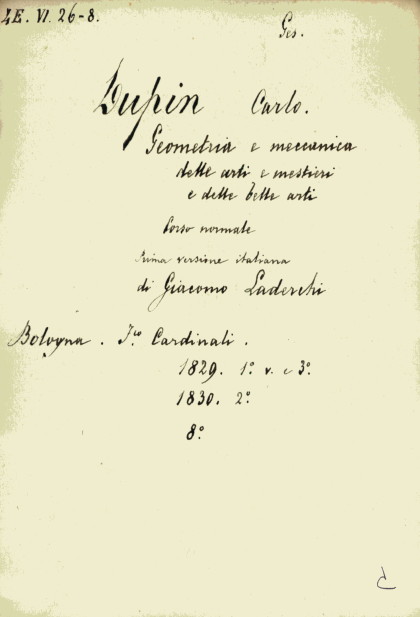 4E. VI. 26-8.
Ges.
Dupin Carlo.
Geometria e meccanica
delle arti e mestieri
e delle belle arti
Corso normale
Prima versione italiana
di Giacomo Laderchi
Bologna. Fco Cardinali.
1829. 1º v. e 3º.
1830. 2º
8º